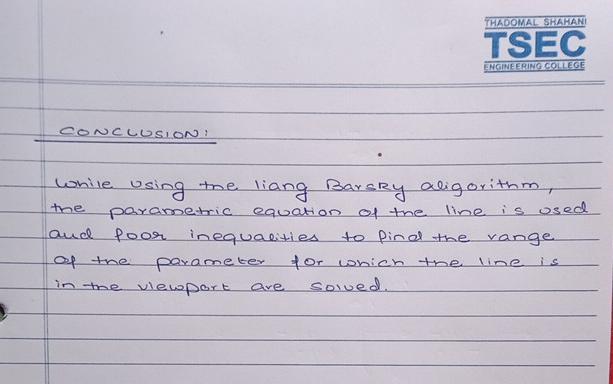 THADOMAL SHAHANI
TSEC
ENGINEERING COLLEGE
CONCLUSION:
While using the liang BarsRy aligorithm,
the parametric equation of the line is used
and foor inequalities to find the range
of the parameter for which the line is
in the viewport are solved.